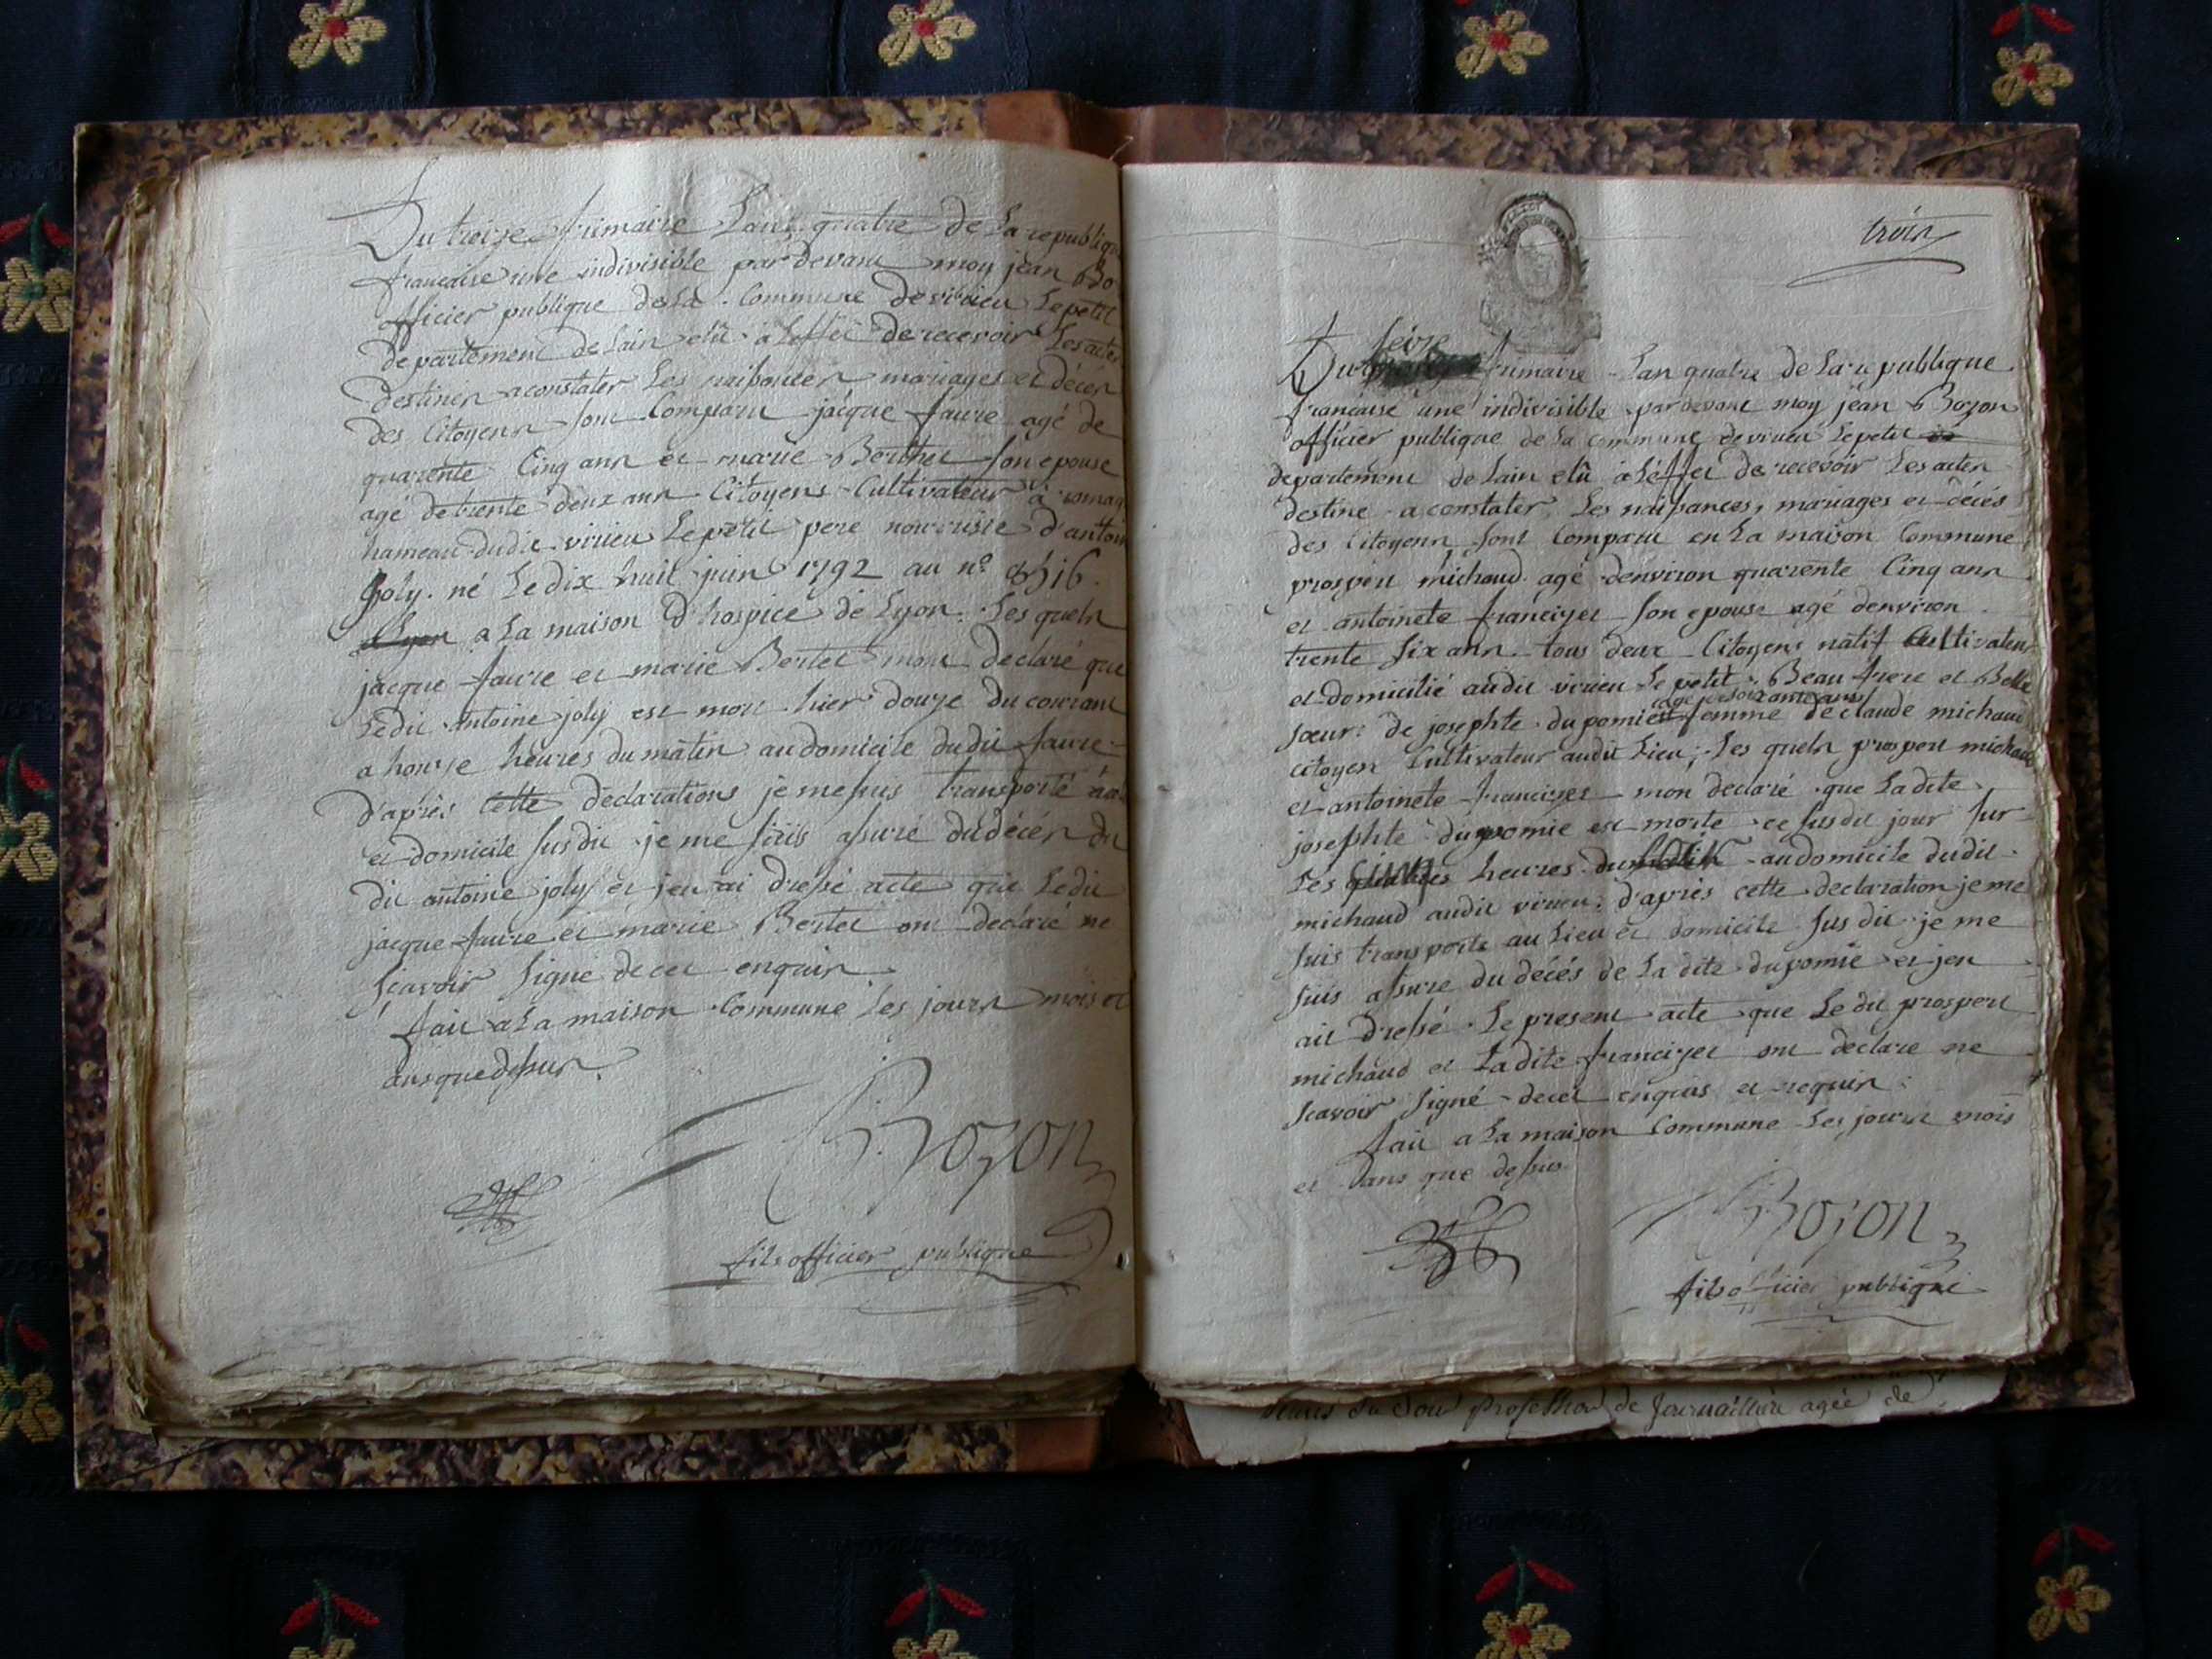 Du treize frimaire Lan quatre de La republique
francaise une indivisible par devant moy jean Bo
officier publique de La Commune de virieu Lepetit
departement de Lain elû a Leffet de recevoir Les actes
destinés a constater Les naissances mariages et décés
des Citoyens sont Comparu jacque faure agé de
quarente Cinq ans et marie Berthet son epouse
agé de trente deux ans Citoyens Cultivateur a romag
hameau dudit virieu Lepetit pere nourrisié d'antoin
Joly né Le dix huit juin 1792 au n°
a La maison d'hospice de Lyon. Les quels
jacque faure et marie Bertet mont declaré que
Ledit antoine joly est mort hier douze du courant
a honze heures du matin au domicile dudit faure
d'après cette déclarations je me suis transporté au
et domicile susdit je me suis assuré du décés du
dit antoine joly et jen ai dressé acte que Ledit
jacque faure et marie Bertet ont declaré ne
scavoir signé de cet enquis
fait a La maison Commune Les jours mois et
ans que dessus.
Bozon
fils officier publique
trois
Du seize frimaire Lan quatre de La republique
francaise une indivisible par devant moy jean Bozon
officier publique de La commune de virieu Lepetit
departement de Lain elû à Léffet de recevoir Les actes
destiné a constater Les naissances, mariages et décés
des Citoyens sont Comparu en La maison Commune
prosper michaud agé denviron quarente Cinq ans
et antoinete francizet son epouse agé denviron
trente six ans tous deux Citoyens natif Cultivateur
et domicilié audit virieu Le petit Beau frere et Belle
sœur de josephte dupomié femme de claude michaud
citoyen Cultivateur audit Lieu; Les quels prosper michaud
et antoinete francizet mon declaré que Ladite
josephte dupomié est morte ce susdit jour sur
Les heures du au domicile dudit
michaud audit virieu; d'après cette declaration je me
suis transporté au Lieu et domicile susdit je me
suis assure du décés de La dite dupomié et jen
ait dressé Le present acte que Ledit prosper
michaud et Ladite francizet ont declare ne
scavoir signé de cet enquis et requis
fait a La maison Commune Les jours mois
et ans que dessus
Bozon
fils officier publique
profession de journalliere agée de